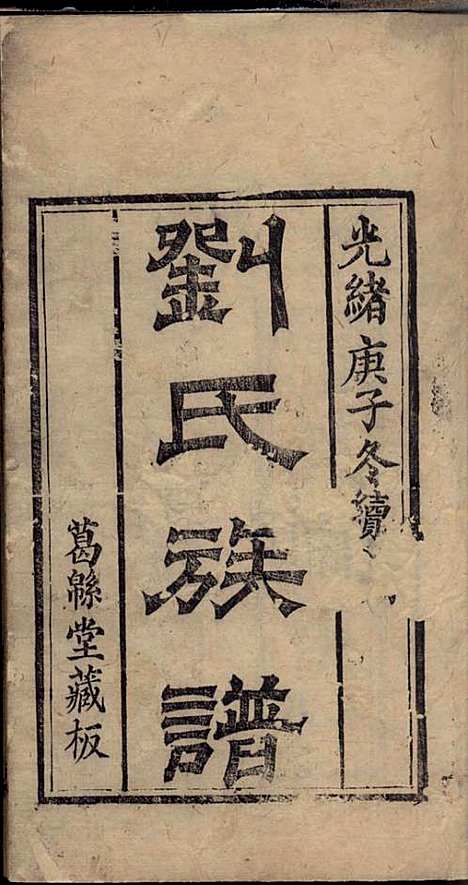 光緒庚子冬續
劉氏族譜
葛緜堂藏板